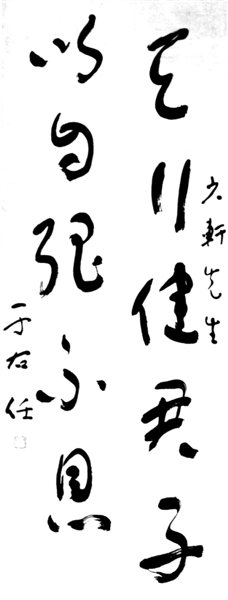 軒先生
天行健君子
以自強不息
于右任